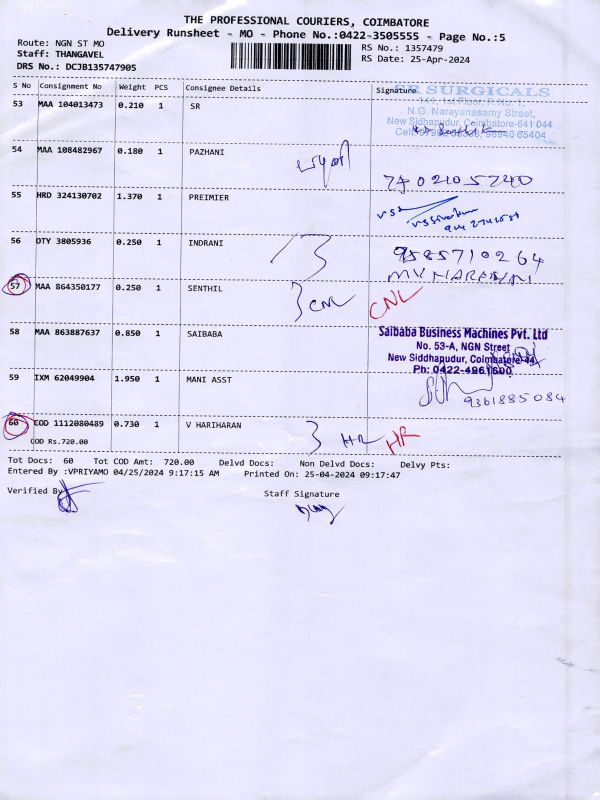 THE PROFESSIONAL COURIERS, COIMBATORE
Delivery Runsheet - MO - Phone No.:0422-3505555 - Page No.:5
Route: NGN ST MO
RS No.: 1357479
Staff: THANGAVEL
RS Date: 25-Apr-2024
DRS No.: DCJB135747905
S No Consignment No Weight PCS Consignee Details Signature
SR SURGICALS
141, 1st Floor, F.No. 1,
53 MAA 104013473 0.210 1 SR
N.G. Narayanasamy Street,
New Sidhapudur, Coimbatore-641 044.
98940 65404
54 MAA 108482967 0.180 1 PAZHANI
பழனி
7402105740
55 HRD 324130702 1.370 1 PREIMIER
56 OTY 3805936 0.250 1 INDRANI
9585710264
57 MAA 864350177 0.250 1 SENTHIL
CNL CNL
58 MAA 863887637 0.850 1 SAIBABA
Saibaba Business Machines Pvt. Ltd
No. 53-A, NGN Street
New Siddhapudur, Coimbatore-44.
Ph: 0422-4961600
59 IXM 62049904 1.950 1 MANI ASST
9361885084
60 COD 1112080489 0.730 1 V HARIHARAN
HR HR
COD Rs.720.00
Tot Docs: 60 Tot COD Amt: 720.00 Delvd Docs: Non Delvd Docs: Delvy Pts:
Entered By :VPRIYAMO 04/25/2024 9:17:15 AM Printed On: 25-04-2024 09:17:47
Verified By
Staff Signature